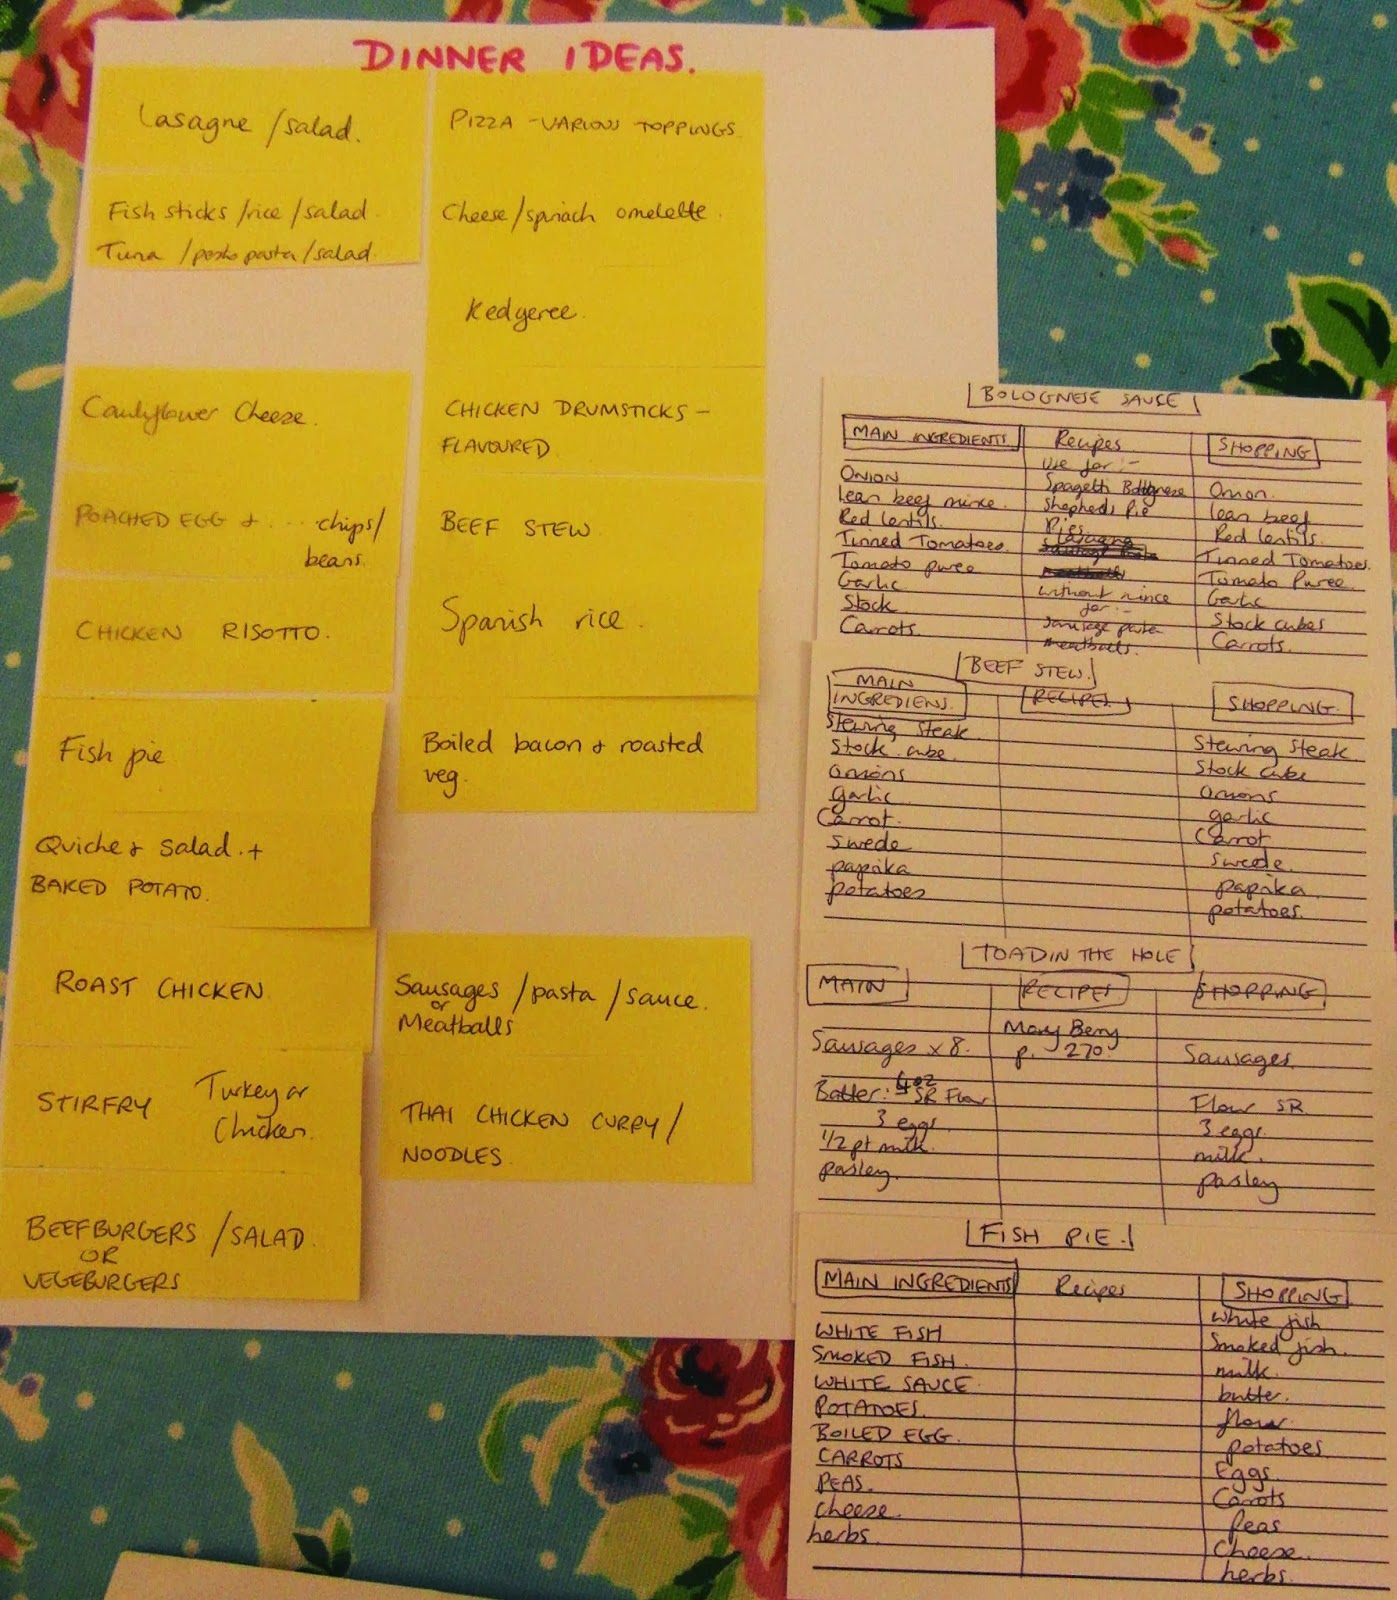 DINNER IDEAS.
Lasagne /salad.
Fish sticks /rice /salad.
Tuna /pesto pasta /salad.
Cauliflower Cheese.
POACHED EGG + ... chips/
beans.
CHICKEN RISOTTO.
Fish pie
Quiche + salad. +
BAKED POTATO.
ROAST CHICKEN
STIRFRY Turkey or
Chicken.
BEEFBURGERS /SALAD.
OR
VEGEBURGERS
PIZZA - VARIOUS TOPPINGS.
Cheese/spinach omelette.
Kedgeree.
CHICKEN DRUMSTICKS -
FLAVOURED
BEEF STEW
Spanish rice.
Boiled bacon + roasted
veg.
Sausages /pasta /sauce.
or
Meatballs
THAI CHICKEN CURRY /
NOODLES.
BOLOGNESE SAUSE
MAIN INGREDIENTS
ONION
lean beef mince.
Red lentils.
Tinned Tomatoes.
Tomato puree
Garlic
Stock
Carrots.
Recipes
use for :-
Spagetti Bolognese
Shepherds Pie
Pies
Lasagna
without mince
for :-
Sausage pasta
meatballs.
SHOPPING
Onion.
lean beef
Red lentils.
Tinned Tomatoes.
Tomato Puree.
Garlic
Stock cubes
Carrots.
BEEF STEW.
MAIN
INGREDIENS.
Stewing steak
Stock cube.
onions
garlic
Carrot.
swede
paprika
potatoes
RECIPES
SHOPPING.
Stewing steak
Stock cube
onions
garlic
Carrot
swede.
paprika
potatoes.
TOAD IN THE HOLE
MAIN
Sausages x 8.
Batter: 4oz SR Flour
3 eggs.
1/2 pt milk.
pasley.
RECIPES
Mary Berry
p. 270.
SHOPPING
Sausages.
Flour SR
3 eggs.
milk.
pasley
FISH PIE.
MAIN INGREDIENTS
WHITE FISH
SMOKED FISH.
WHITE SAUCE.
POTATOES.
BOILED EGG.
CARROTS
PEAS.
cheese.
herbs.
Recipes
SHOPPING
white fish
Smoked fish.
milk.
butter.
flour.
potatoes
Eggs.
Carrots
Peas
Cheese.
herbs.